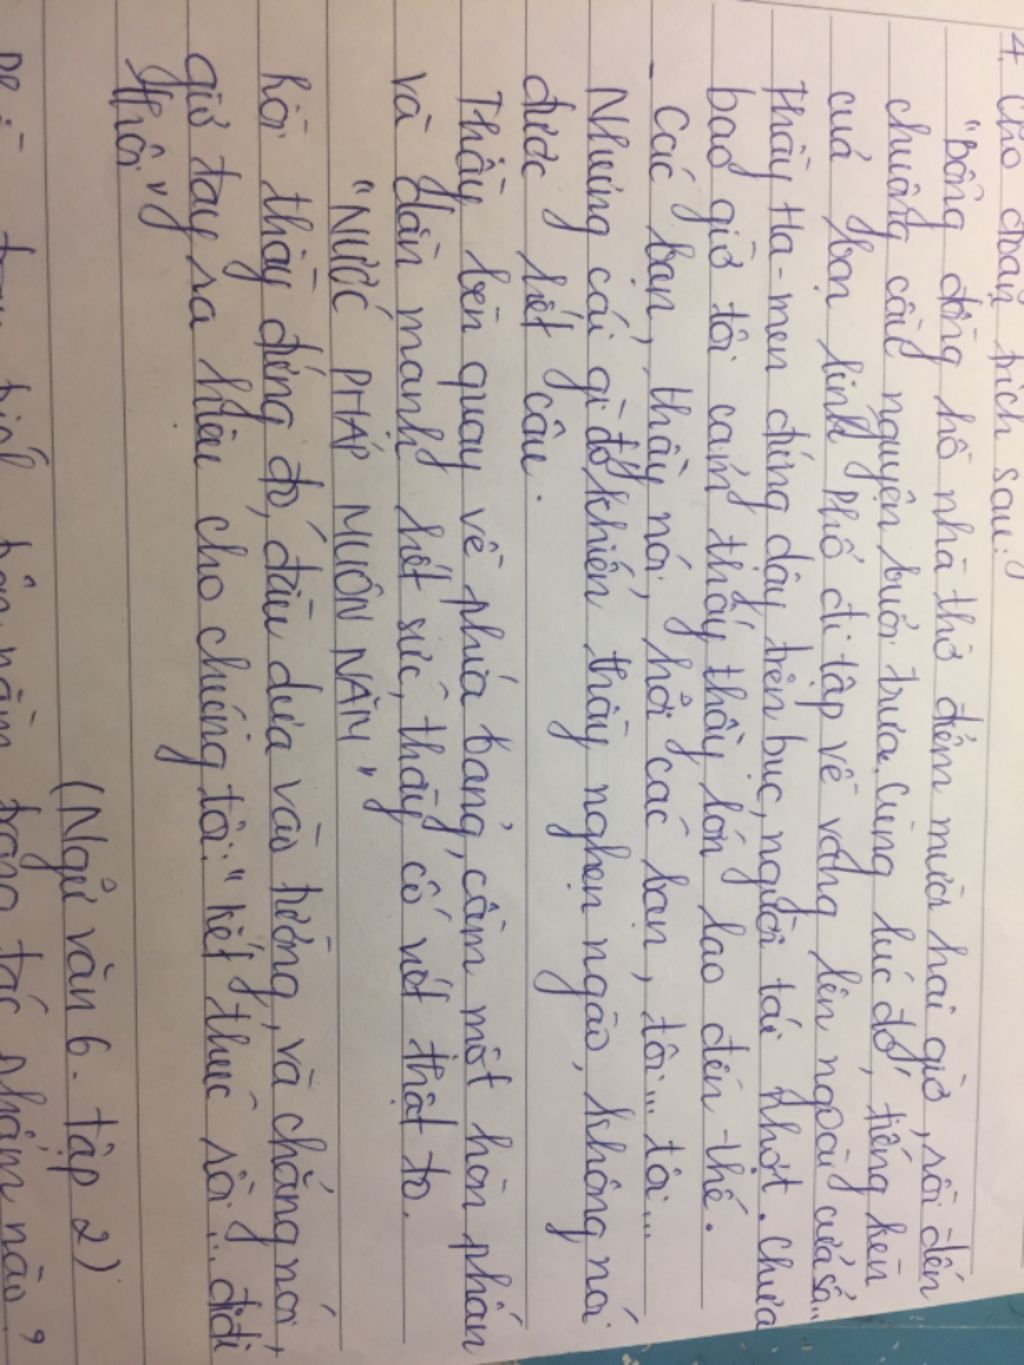 4. Cho đoạn trích sau:
"Bỗng đồng hồ nhà thờ điểm mười hai giờ, rồi đến
chuông cầu nguyện buổi trưa. Cùng lúc đó, tiếng kèn
của bọn lính Phổ đi tập về vang lên ngoài cửa sổ...
Thầy Ha-men đứng dậy trên bục, người tái nhợt. Chưa
bao giờ tôi cảm thấy thầy lớn lao đến thế.
- Các bạn, thầy nói, hỡi các bạn, tôi... tôi...
Nhưng cái gì đó khiến thầy nghẹn ngào, không nói
được hết câu.
Thầy bèn quay về phía bảng, cầm một hòn phấn
và dằn mạnh hết sức, thầy cố viết thật to.
"NƯỚC PHÁP MUÔN NĂM"
Rồi thầy đứng đó, đầu dựa vào tường, và chẳng nói,
giơ tay ra hiệu cho chúng tôi: "kết thúc rồi... đi đi
thôi"
(Ngữ văn 6. tập 2)
tác phẩm nào?